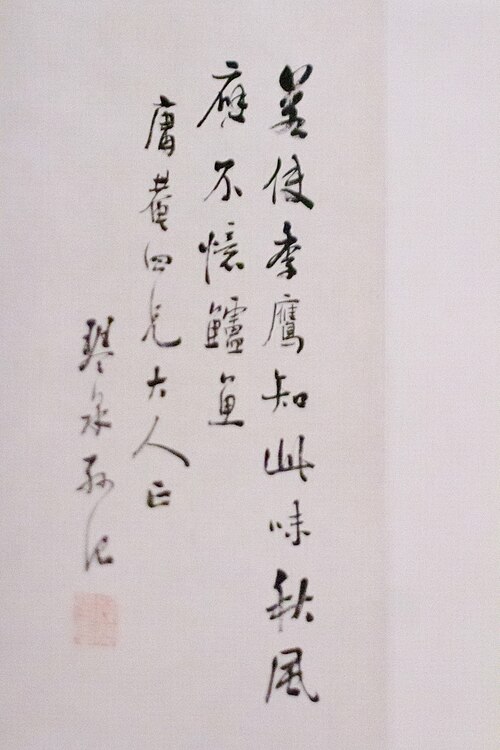 若使季鷹知此味秋風
應不憶鱸魚
庸菴四兄大人正
琴泉孫